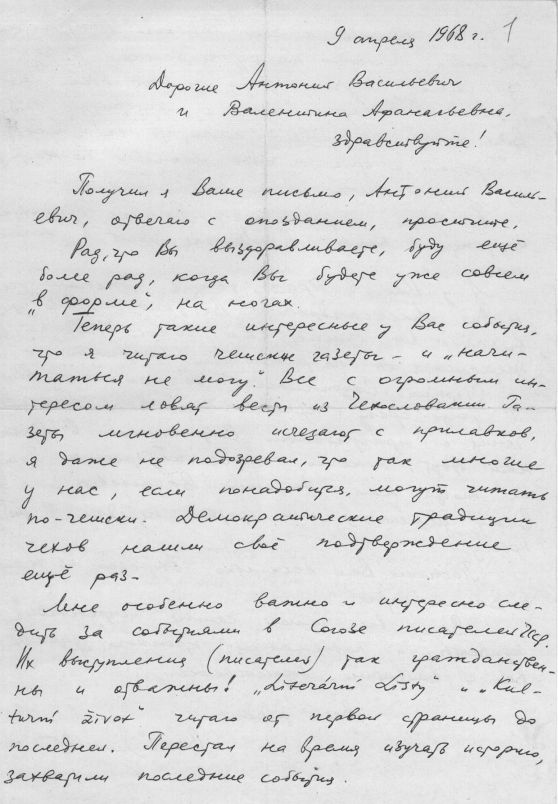 9 апреля 1968 г. 1
Дорогие Антоний Васильевич
и Валентина Афанасьевна,
здравствуйте!
Получил я Ваше письмо, Антоний Василь-
евич, отвечаю с опозданием, простите.
Рад, что Вы выздоравливаете, буду ещё
более рад, когда Вы будете уже совсем
„в форме", на ногах.
Теперь такие интересные у Вас события,
что я читаю чешские газеты – и „начи-
таться не могу". Все с огромным ин-
тересом ловят вести из Чехословакии. Га-
зеты мгновенно исчезают с прилавков,
я даже не подозревал, что так многие
у нас, если понадобится, могут читать
по-чешски. Демократические традиции
чехов нашли своё подтверждение
ещё раз.
Мне особенно важно и интересно сле-
дить за событиями в Союзе писателей ЧСР.
Их выступления (писателей) так гражданствен-
ны и отважны! „Literární Listy" и „Kul-
turní život" читаю от первой страницы до
последней. Перестал на время изучать историю,
захватили последние события.